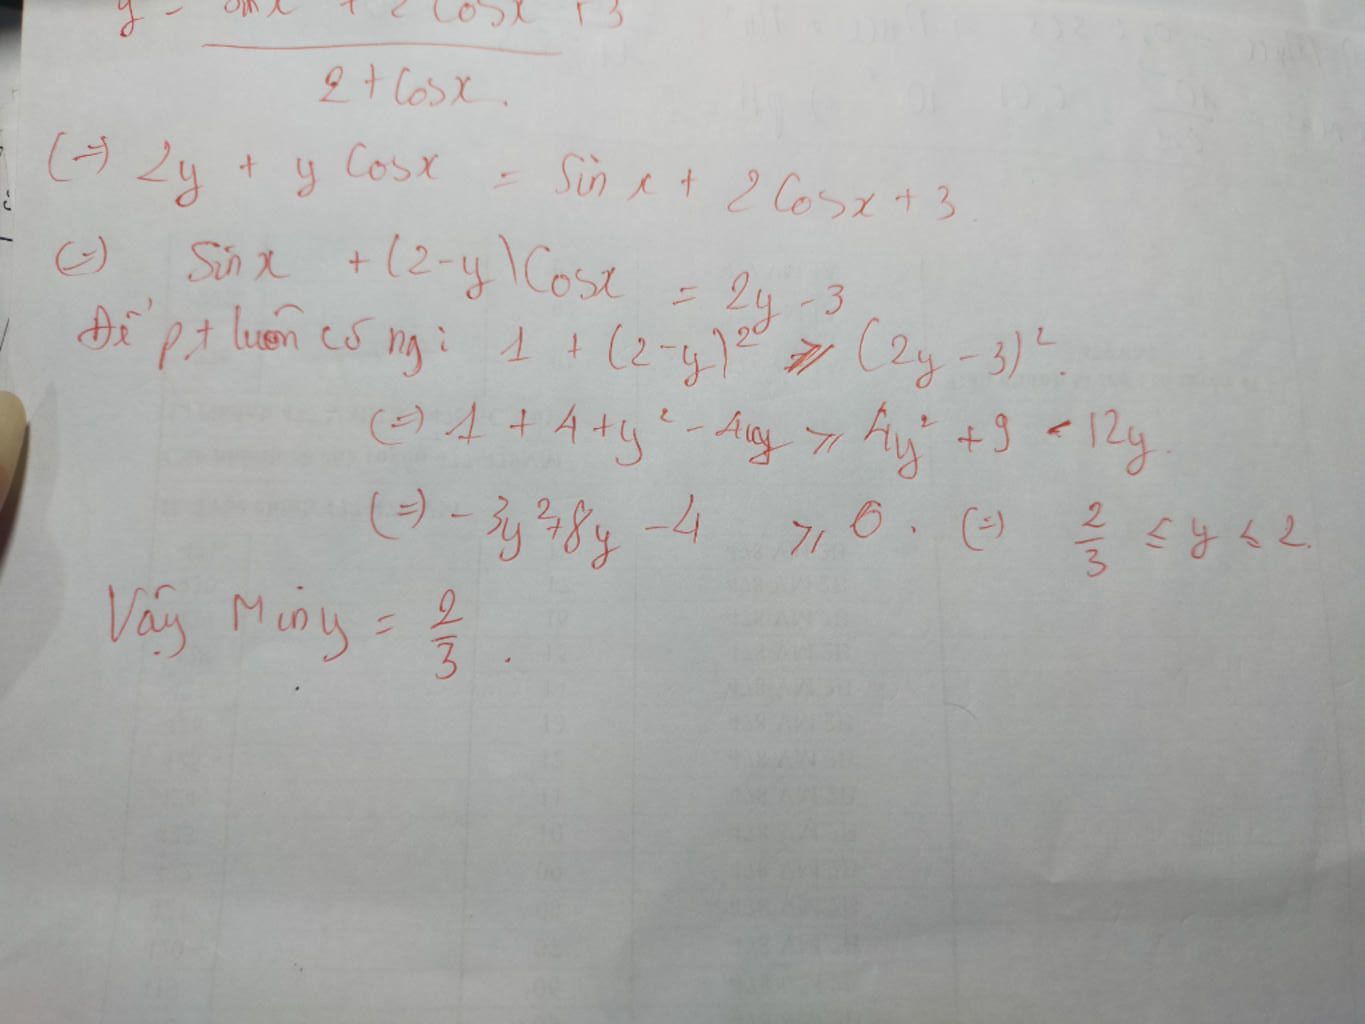 y = sinx + 2 Cosx + 3
2 + Cosx.
(=) 2y + y Cosx = Sin x + 2 Cosx + 3.
(=) Sinx + (2-y) Cosx = 2y - 3
Để pt luôn có ng: 1 + (2-y)² ≥ (2y-3)².
(=) 1 + 4 + y² - 4y ≥ 4y² + 9 - 12y.
(=) -3y² + 8y - 4 ≥ 0. (=) 2/3 ≤ y ≤ 2.
Vậy Min y = 2/3.